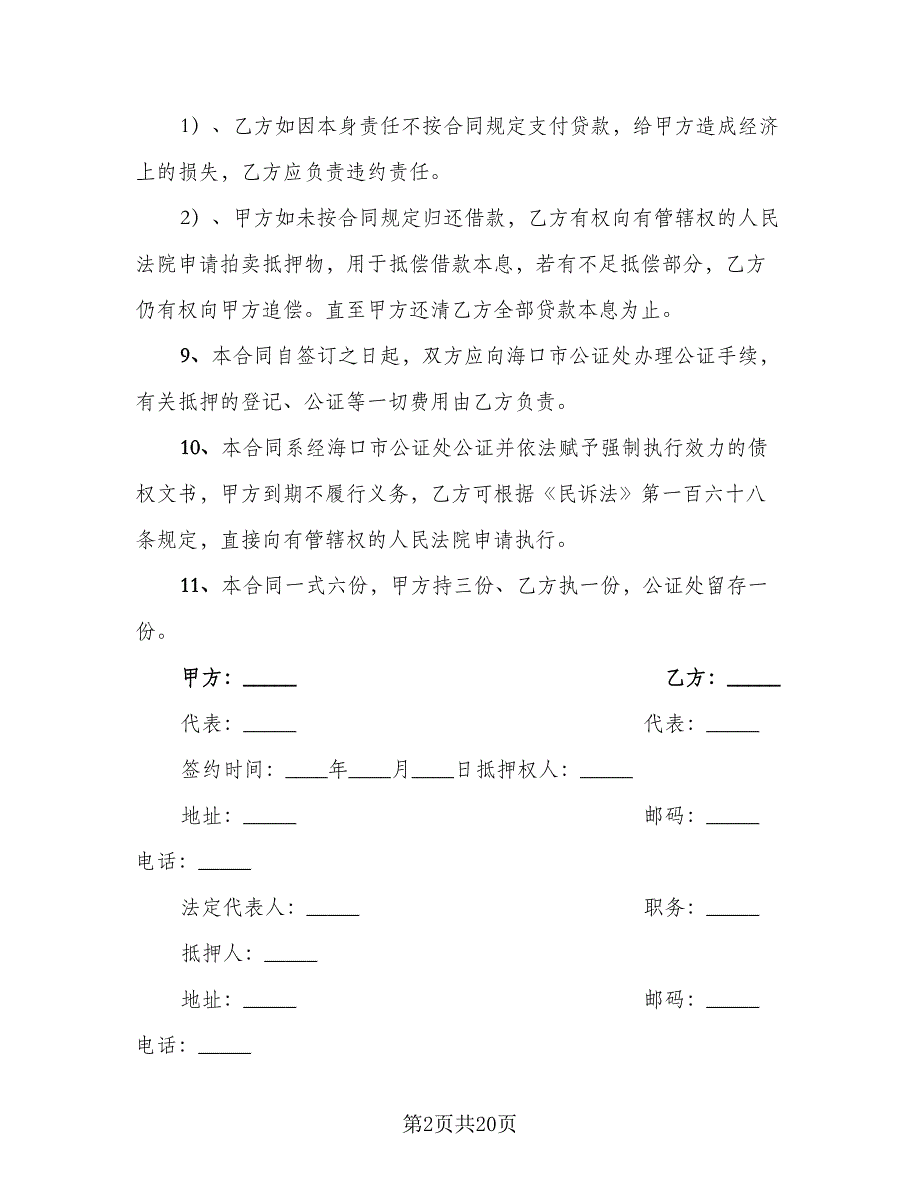 1）、乙方如因本身责任不按合同规定支付贷款，给甲方造成经济
上的损失，乙方应负责违约责任。
2）、甲方如未按合同规定归还借款，乙方有权向有管辖权的人民
法院申请拍卖抵押物，用于抵偿借款本息，若有不足抵偿部分，乙方
仍有权向甲方追偿。直至甲方还清乙方全部贷款本息为止。
9、本合同自签订之日起，双方应向海口市公证处办理公证手续，
有关抵押的登记、公证等一切费用由乙方负责。
10、本合同系经海口市公证处公证并依法赋予强制执行效力的债
权文书，甲方到期不履行义务，乙方可根据《民诉法》第一百六十八
条规定，直接向有管辖权的人民法院申请执行。
11、本合同一式六份，甲方持三份、乙方执一份，公证处留存一
份。
甲方：_____ 乙方：_____
代表：_____ 代表：_____
签约时间：____年____月____日抵押权人：_____
地址：_____ 邮码：_____
电话：_____
法定代表人：_____ 职务：_____
抵押人：_____
地址：_____ 邮码：_____
电话：_____
第2页共20页